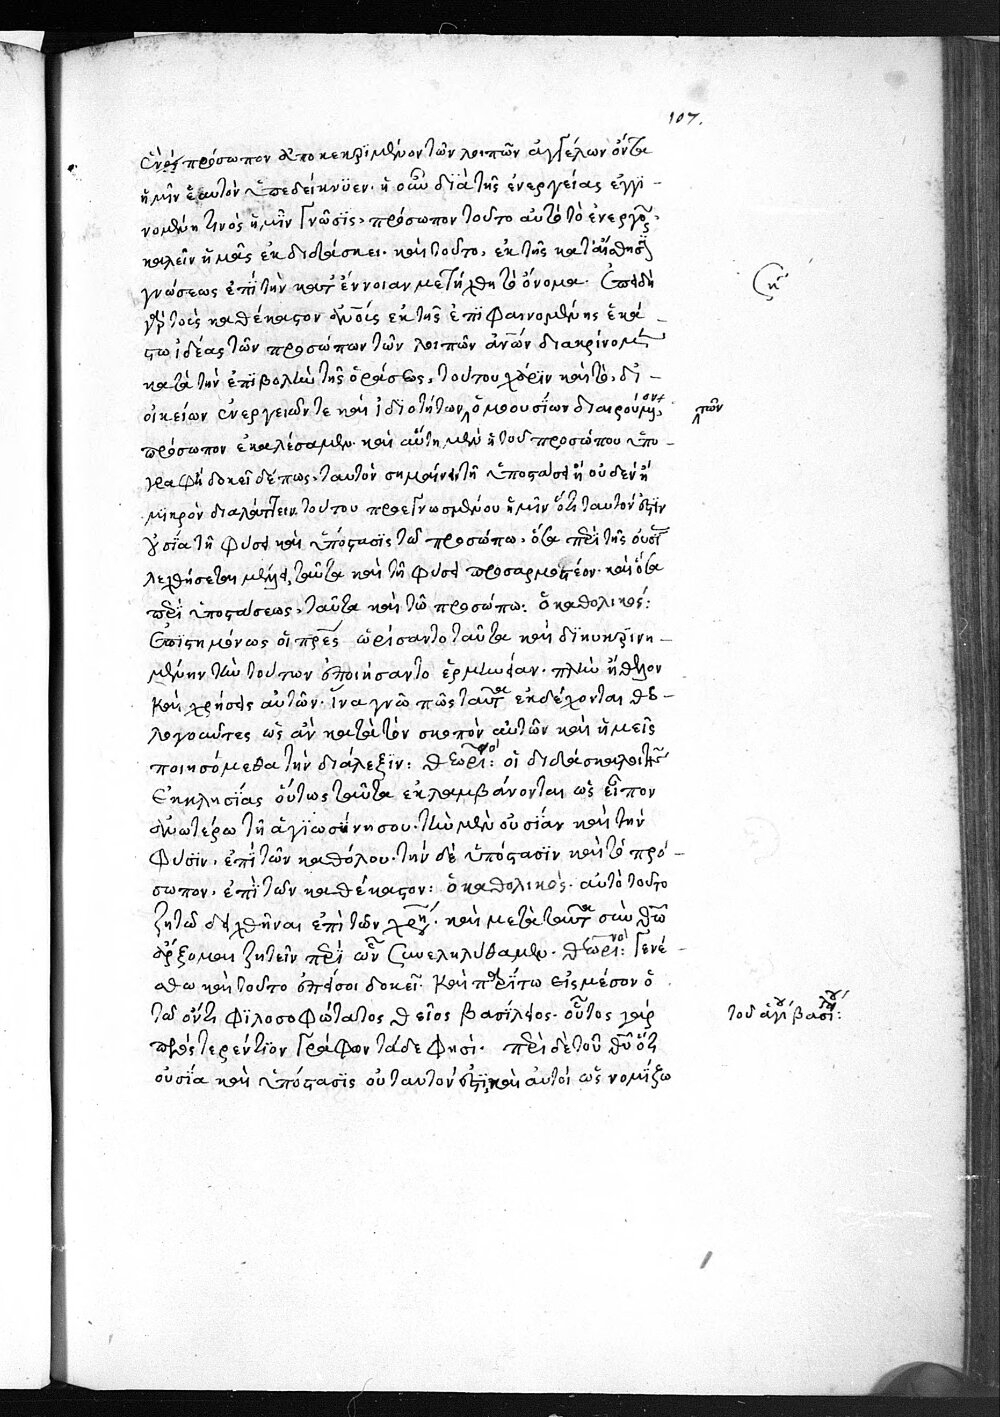 107.
ἑνὸς πρόσωπον ἀποκεκριμένον τῶν λοιπῶν ἀγγέλων ὄντα
ἡμῖν ἑαυτὸν ὑπεδείκνυεν· ἡ οὖν διὰ τῆς ἐνεργείας ἐγγι-
νομένη τινὸς ἡμῖν γνῶσϊς, πρόσωπον τοῦτο αὐτὸ τὸ ἐνεργοῦν,
καλεῖν ἡμᾶς ἐκδιδάσκει· καὶ τοῦτο, ἐκ τῆς κατ' αἴσθησιν
γνώσεως ἐπὶ τὴν κατ' ἔννοιαν μετήχθη τὸ ὄνομα· Ἐπειδὴ
γὰρ τοῖς καθέκαστον ἀνθρώποις ἐκ τῆς ἐπιφαινομένης ἑκά-
στῳ ἰδέας τῶν προσώπων τῶν λοιπῶν ἀνῶν διακρίνομεν
κατὰ τὴν ἐπιβολὴν τῆς ὁράσεως, τούτου χάριν καὶ τὸ, δι'
οἰκείων ἐνεργειῶν τε καὶ ἰδιοτήτων ὁμοουσίων διαιρούμενον,
τῶν
πρόσωπον ἐκαλέσαμεν· καὶ αὕτη μὲν ἡ τοῦ προσώπου ὑπο-
γραφὴ δοκεῖ δέ πως, ταυτὸν σημαίνειν τῇ ὑποστάσει ἢ οὐδὲν ἢ
μικρὸν διαλάττειν τούτου προεγνωσμένου ἡμῖν ὅτι ταυτόν ἐστιν
οὐσία τῇ φύσει καὶ ὑπόστασϊς τῷ προσώπω, ὅσα περὶ τῆς οὐσίας
λεχθήσεται μὲν, ταῦτα καὶ τῇ φύσει προσαρμοστέον· καὶ ὅσα
περὶ ὑποστάσεως, ταῦτα καὶ τῶ προσώπω: ὁ καθολικός:
Ἐπϊστημόνως οἱ πρες ὡρίσαντο ταῦτα καὶ διηυκρινη-
μένην τὴν τούτων ἐποιήσαντο ἑρμηνείαν· πλὴν ἤθελον
καὶ χρήσεις αὐτῶν· ἵνα γνῶ πῶς ταῦτα ἐκδέχονται θεο-
λογοῦντες ὡς ἂν κατὰ τὸν σκοπὸν αὐτῶν καὶ ἡμεῖς
ποιησόμεθα τὴν διάλεξιν: θεωριανός: οἱ διδάσκαλοι τῆς
Ἐκκλησΐας οὕτως ταῦτα ἐκλαμβάνονται ὡς εἶπον
ἀνωτέρω τῇ ἁγϊωσύνη σου· τὴν μὲν οὐσίαν καὶ τὴν
φύσϊν, ἐπὶ τῶν καθόλου· τὴν δὲ ὑπόστασϊν καὶ τὸ πρό-
σωπον, ἐπὶ τῶν καθέκαστον: ὁ καθολικός· αὐτὸ τοῦτο
ζητῶ δειχθῆναι ἐπὶ τῶν χρήσεων· καὶ μετὰ ταῦτα σὺν θεῶ
ἄρξομαι ζητεῖν περὶ ὧν συνεληλύθαμεν· θεωριανός: γενέ-
σθω καὶ τοῦτο ἐπεί σοι δοκεῖ· Καὶ παρίτω εἰς μέσον ὁ
τῶ ὄντι φϊλοσοφώτατος θεῖος βασίλειος· οὗτος γὰρ
τοῦ ἁγίου βασιλείου:
πρὸς τερέντϊον γράφων τάδε φησί· περὶ δὲ τοῦ θυ ὅτι
οὐσΐα καὶ ὑπόστασϊς οὐ ταυτόν ἐστϊ, καὶ αὐτοὶ ὡς νομΐζω